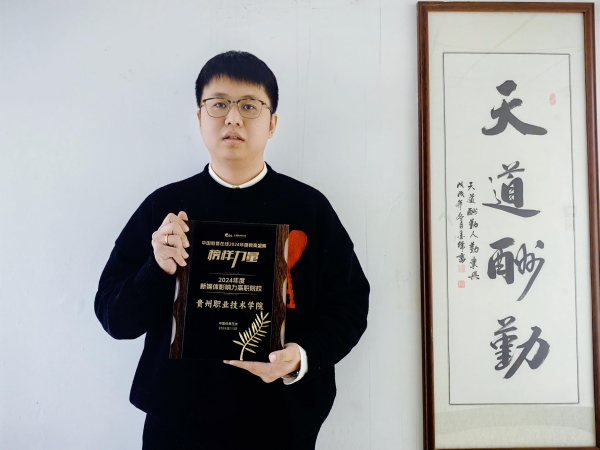 中国教育在线2024年度教育盛典
榜样力量
2024年度
新媒体影响力高职院校
贵州职业技术学院
中国教育在线
天道酬勤
天道酬勤人勤业兴